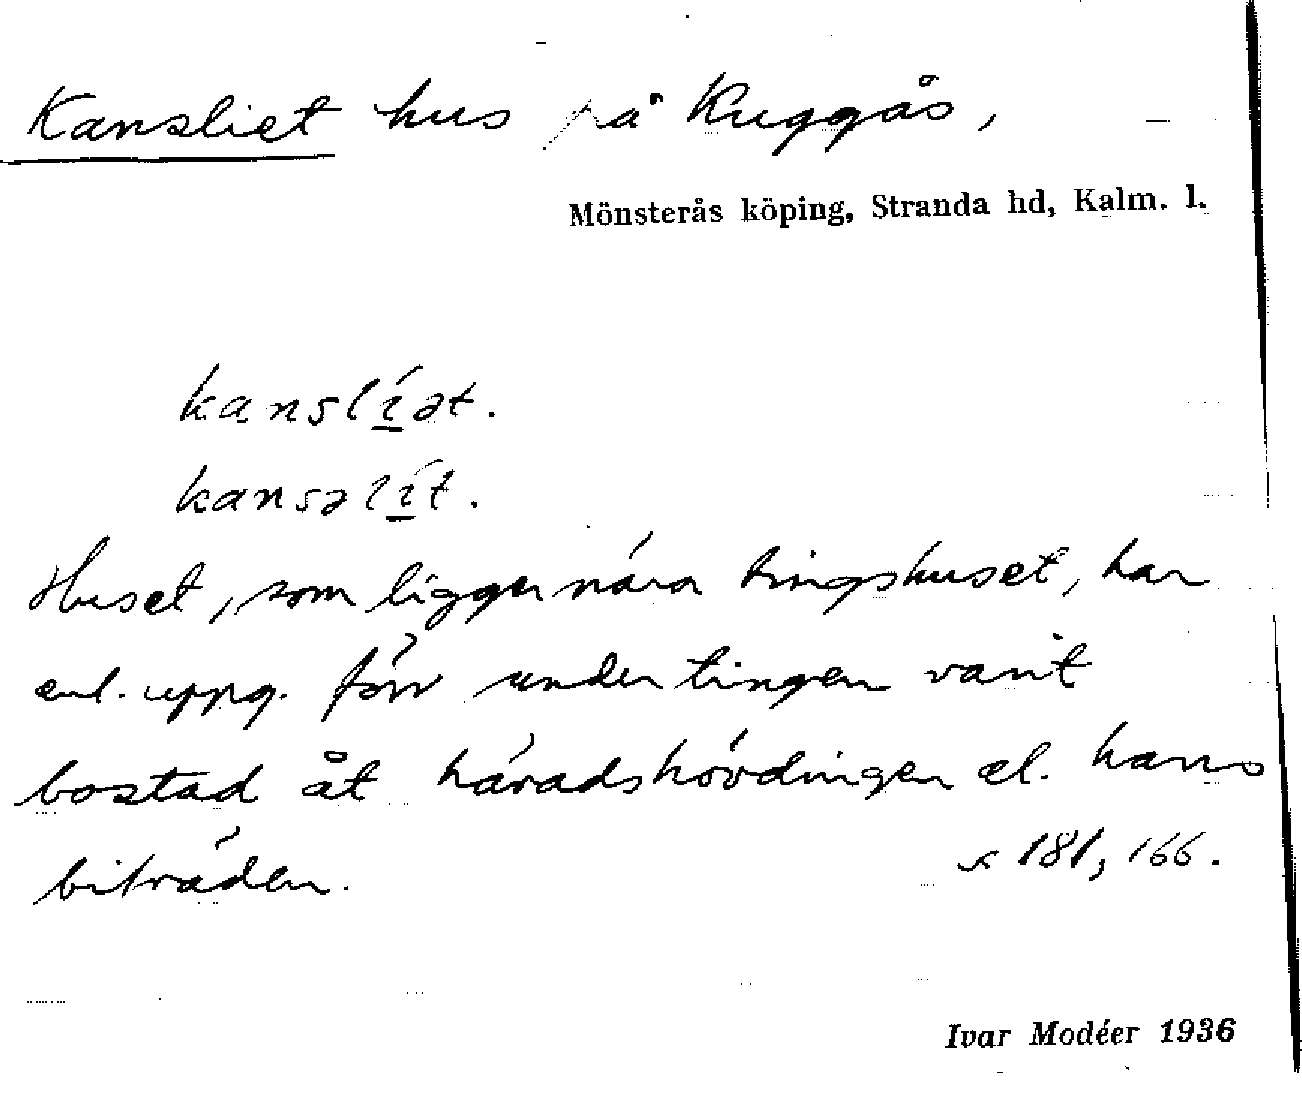 Kansliet hus på Kuggås,
Mönsterås köping, Stranda hd, Kalm. l.
kanslíət.
kansəlít.
Huset, som ligger nära tingshuset, har
enl. uppg. förr under tingen varit
bostad åt häradshövdingen el. hans
biträden.
s 181, 166.
Ivar Modéer 1936